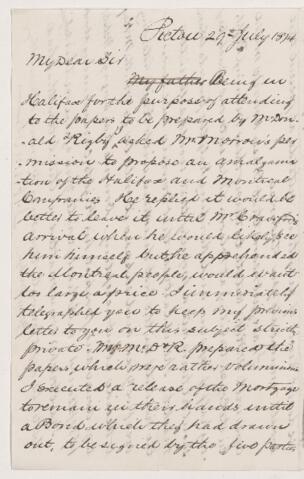 Pictou 29th July 1874
My Dear Sir
My father Being in
Halifax for the purpose of attending
to the papers to be prepared by McDon
-ald & Rigby asked Mr Morrow's per
mission to propose an amalgama
tion of the Halifax and Montreal
Companies. He replied it would be
better to leave it, until Mr Crawford's
arrival when he would likely see
him himself but he apprehended
the Montreal people, would want
too large a price. I immediately
telegraphed you to keep my previous
letter to you on this subject strictly
private. McD & R. prepared the
papers, which were rather voluminous
I executed a release of the Mortgage
to remain in their hands until
a Bond which they had drawn
out, to be signed by the five parties